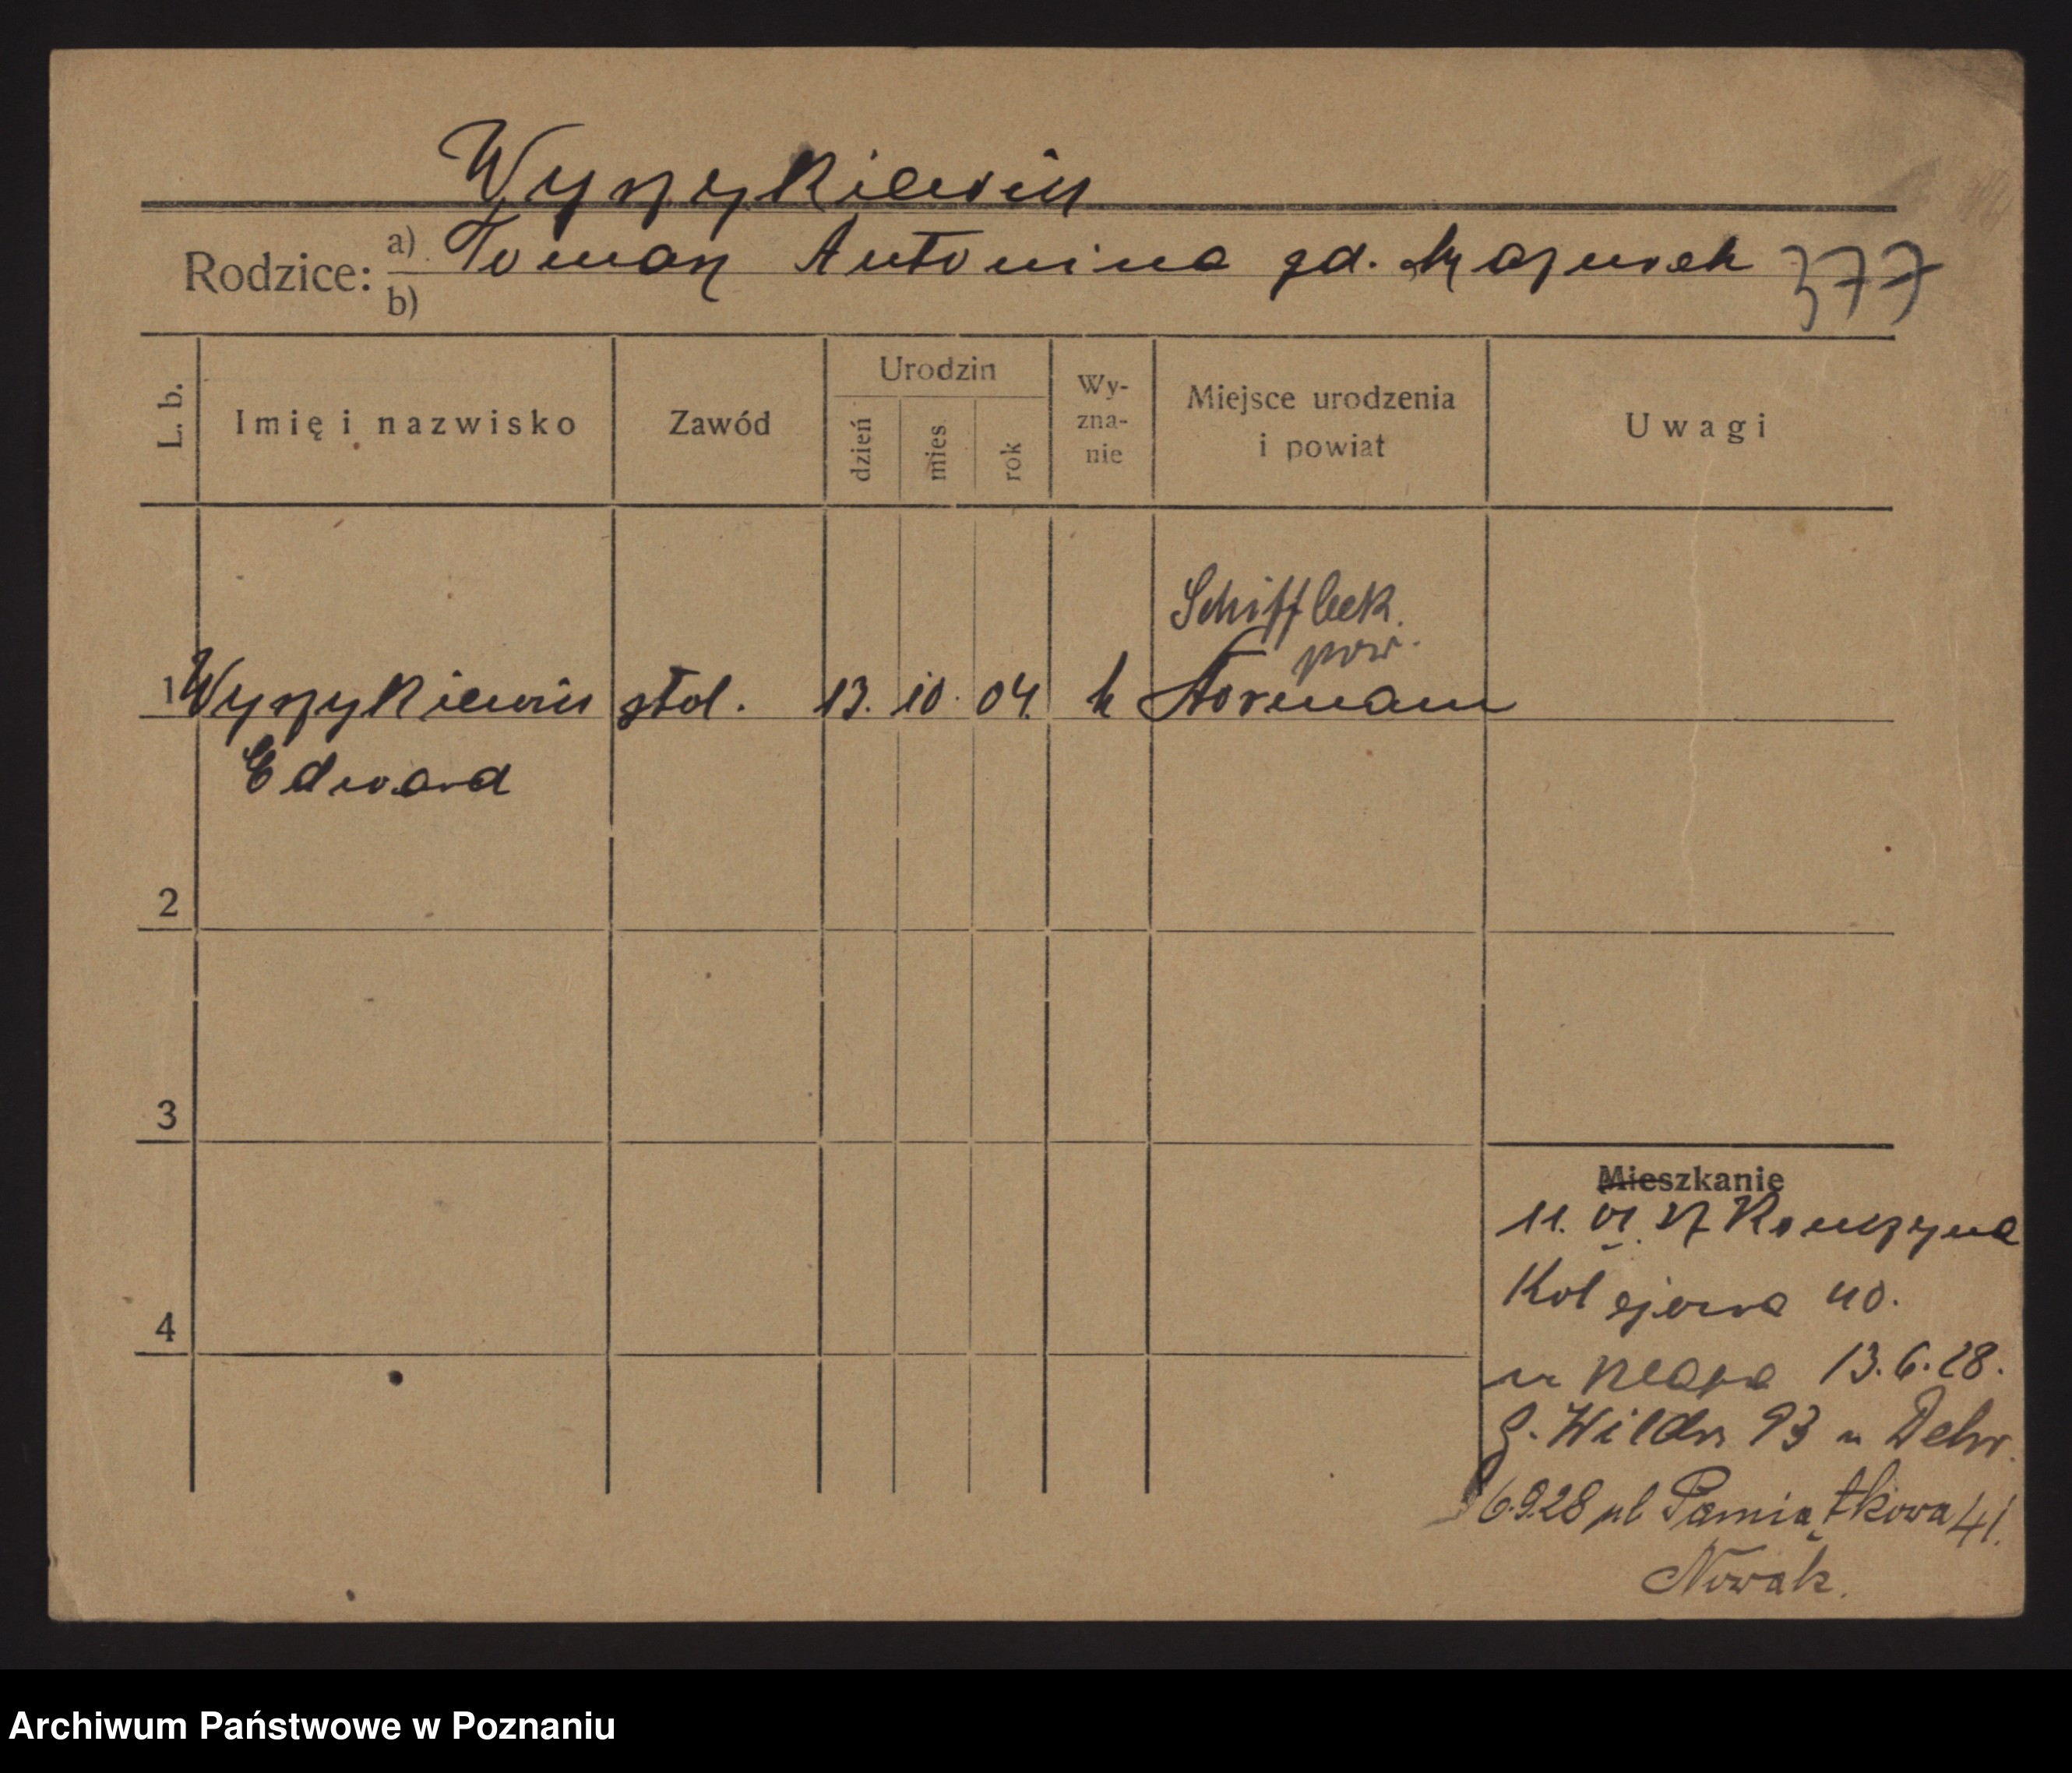 Wyszykiewicz
Rodzice: a) Tomasz Antonina zd. Mazurek 377
b)
L. b. Imię i nazwisko Zawód Urodzin dzień mies. rok Wy-zna-nie Miejsce urodzenia i powiat Uwagi
Schiffbek
pow.
1 Wyszykiewicz stol. 13. 10. 04. k Stormarn
Edward
2
3
Mieszkanie
11. VI. 27
Kolejowa 40.
4
13.6.28.
G. Wilda 93 u Dehr.
6.9.28 ul Pamiątkowa 41.
Nowak.
Archiwum Państwowe w Poznaniu